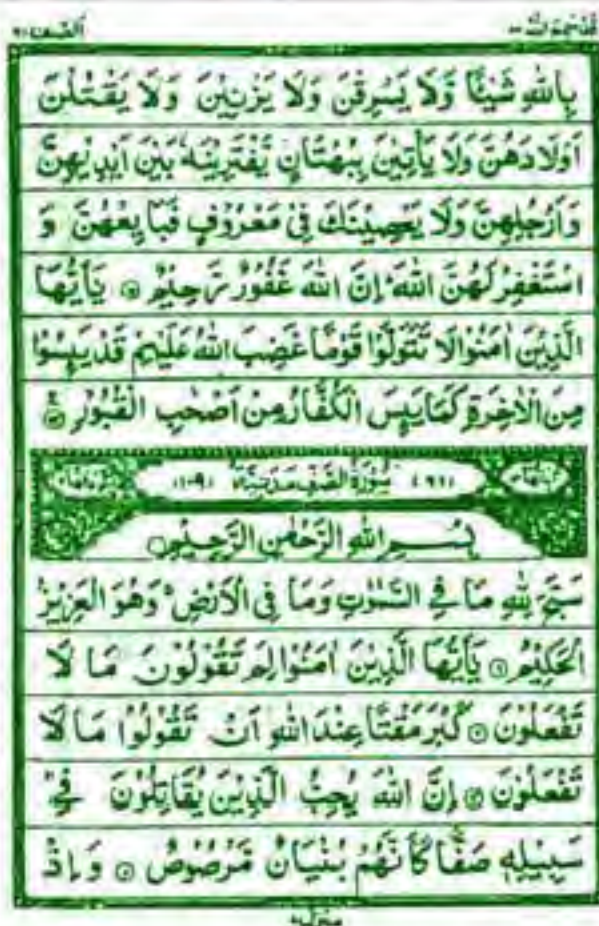 قد سمع الله ٢٨
الصف ٦١
بِاللّٰهِ شَيْئًا وَّلَا يَسْرِقْنَ وَلَا يَزْنِيْنَ وَلَا يَقْتُلْنَ
اَوْلَادَهُنَّ وَلَا يَاْتِيْنَ بِبُهْتَانٍ يَّفْتَرِيْنَهٗ بَيْنَ اَيْدِيْهِنَّ
وَاَرْجُلِهِنَّ وَلَا يَعْصِيْنَكَ فِيْ مَعْرُوْفٍ فَبَايِعْهُنَّ وَ
اسْتَغْفِرْ لَهُنَّ اللّٰهَ ؕ اِنَّ اللّٰهَ غَفُوْرٌ رَّحِيْمٌ ۝ يٰۤاَيُّهَا
الَّذِيْنَ اٰمَنُوْا لَا تَتَوَلَّوْا قَوْمًا غَضِبَ اللّٰهُ عَلَيْهِمْ قَدْ يَىِٕسُوْا
مِنَ الْاٰخِرَةِ كَمَا يَىِٕسَ الْكُفَّارُ مِنْ اَصْحٰبِ الْقُبُوْرِ ۝
(٦١) سُوْرَةُ الصَّفِّ مَدَنِيَّةٌ (١٠٩)
بِسْمِ اللّٰهِ الرَّحْمٰنِ الرَّحِيْمِ
سَبَّحَ لِلّٰهِ مَا فِي السَّمٰوٰتِ وَمَا فِي الْاَرْضِ ۚ وَهُوَ الْعَزِيْزُ
الْحَكِيْمُ ۝ يٰۤاَيُّهَا الَّذِيْنَ اٰمَنُوْا لِمَ تَقُوْلُوْنَ مَا لَا
تَفْعَلُوْنَ ۝ كَبُرَ مَقْتًا عِنْدَ اللّٰهِ اَنْ تَقُوْلُوْا مَا لَا
تَفْعَلُوْنَ ۝ اِنَّ اللّٰهَ يُحِبُّ الَّذِيْنَ يُقَاتِلُوْنَ فِيْ
سَبِيْلِهٖ صَفًّا كَاَنَّهُمْ بُنْيَانٌ مَّرْصُوْصٌ ۝ وَاِذْ
منزل ٧